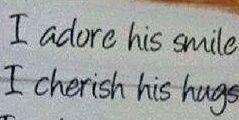 I adore his smile
I cherish his hugs